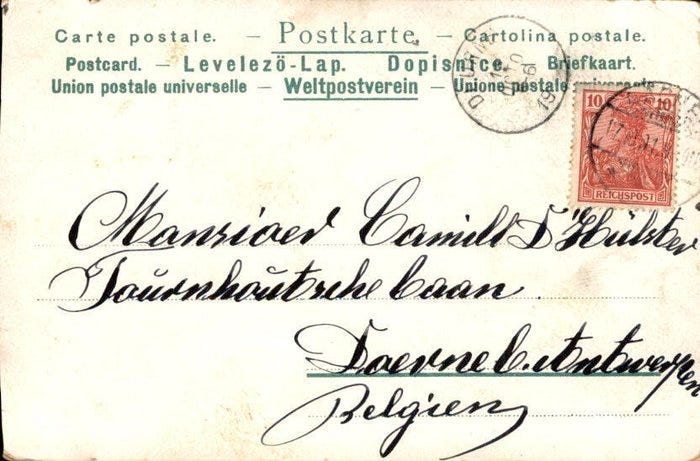 Carte postale. — Postkarte. — Cartolina postale.
Postcard. — Levelező-Lap. Dopisnice. Briefkaart.
Union postale universelle — Weltpostverein — Unione postale universale
10 10
REICHSPOST
Mansioer Camill D'Hulster
Tournhoutsche baan
Doerne b. Antwerpen
Belgien